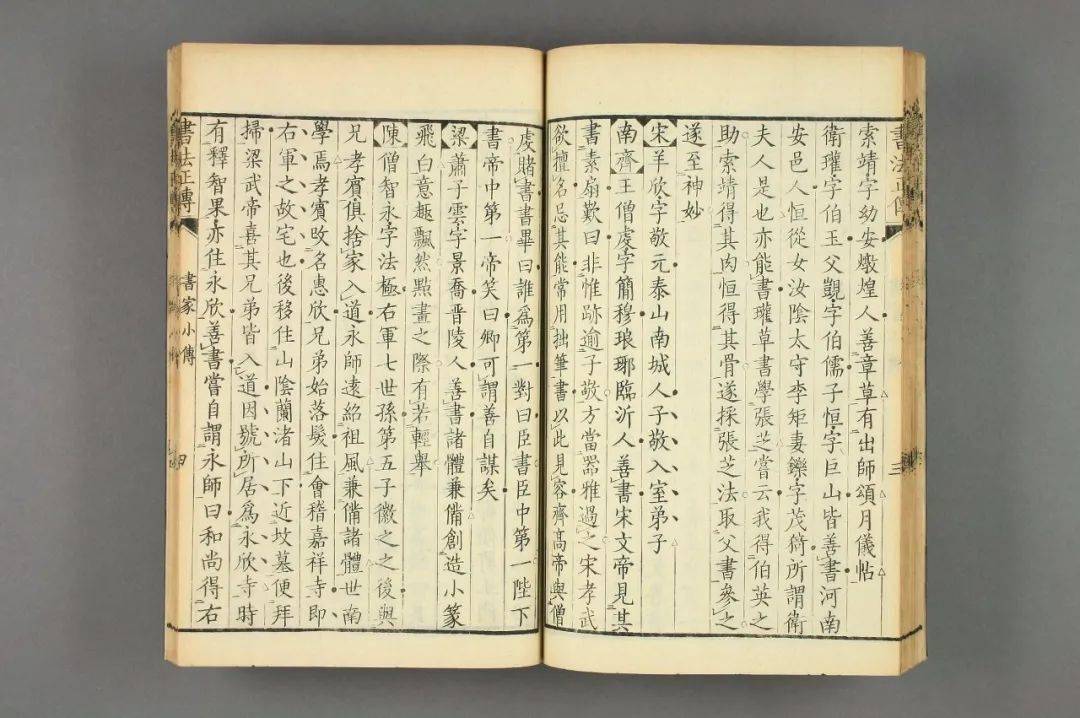 書法正傳
三
索靖字幼安燉煌人善章草有出師頌月儀帖
衛瓘字伯玉父覬字伯儒子恒字巨山皆善書河南
安邑人恒從女汝陰太守李矩妻鑠字茂猗所謂衛
夫人是也亦能書瓘草書學張芝嘗云我得伯英之
助索靖得其肉恒得其骨遂採張芝法取父書參之
遂至神妙
宋羊欣字敬元泰山南城人子敬入室弟子
南齊王僧虔字簡穆琅琊臨沂人善書宋文帝見其
書素扇歎曰非惟跡逾子敬方當器雅過之宋孝武
欲擅名忌其能常用拙筆書以此見容齊高帝與僧
虔賭書書畢曰誰為第一對曰臣書臣中第一陛下
書帝中第一帝笑曰卿可謂善自謀矣
梁蕭子雲字景喬晉陵人善書諸體兼備創造小篆
飛白意趣飄然點畫之際有若輕舉
陳僧智永字法極右軍七世孫第五子徽之之後與
兄孝賓俱捨家入道永師遠紹祖風兼備諸體世南
學焉孝賓改名惠欣兄弟始落髮住會稽嘉祥寺即
右軍之故宅也後移住山陰蘭渚山下近墳墓便拜
掃梁武帝喜其兄弟皆入道因號所居為永欣寺時
有釋智果亦住永欣善書嘗自謂永師曰和尚得右
書法正傳
書家小傳
四